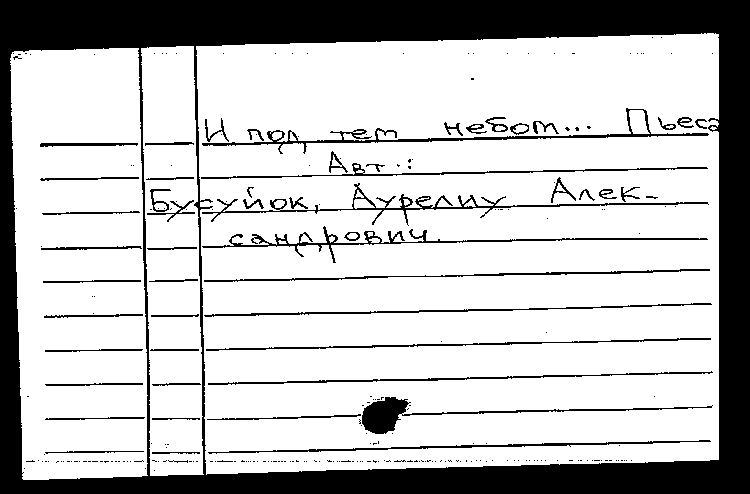 И под тем небом... Пьеса
Авт.:
Бусуйок, Аурелиу Алек-
сандрович.